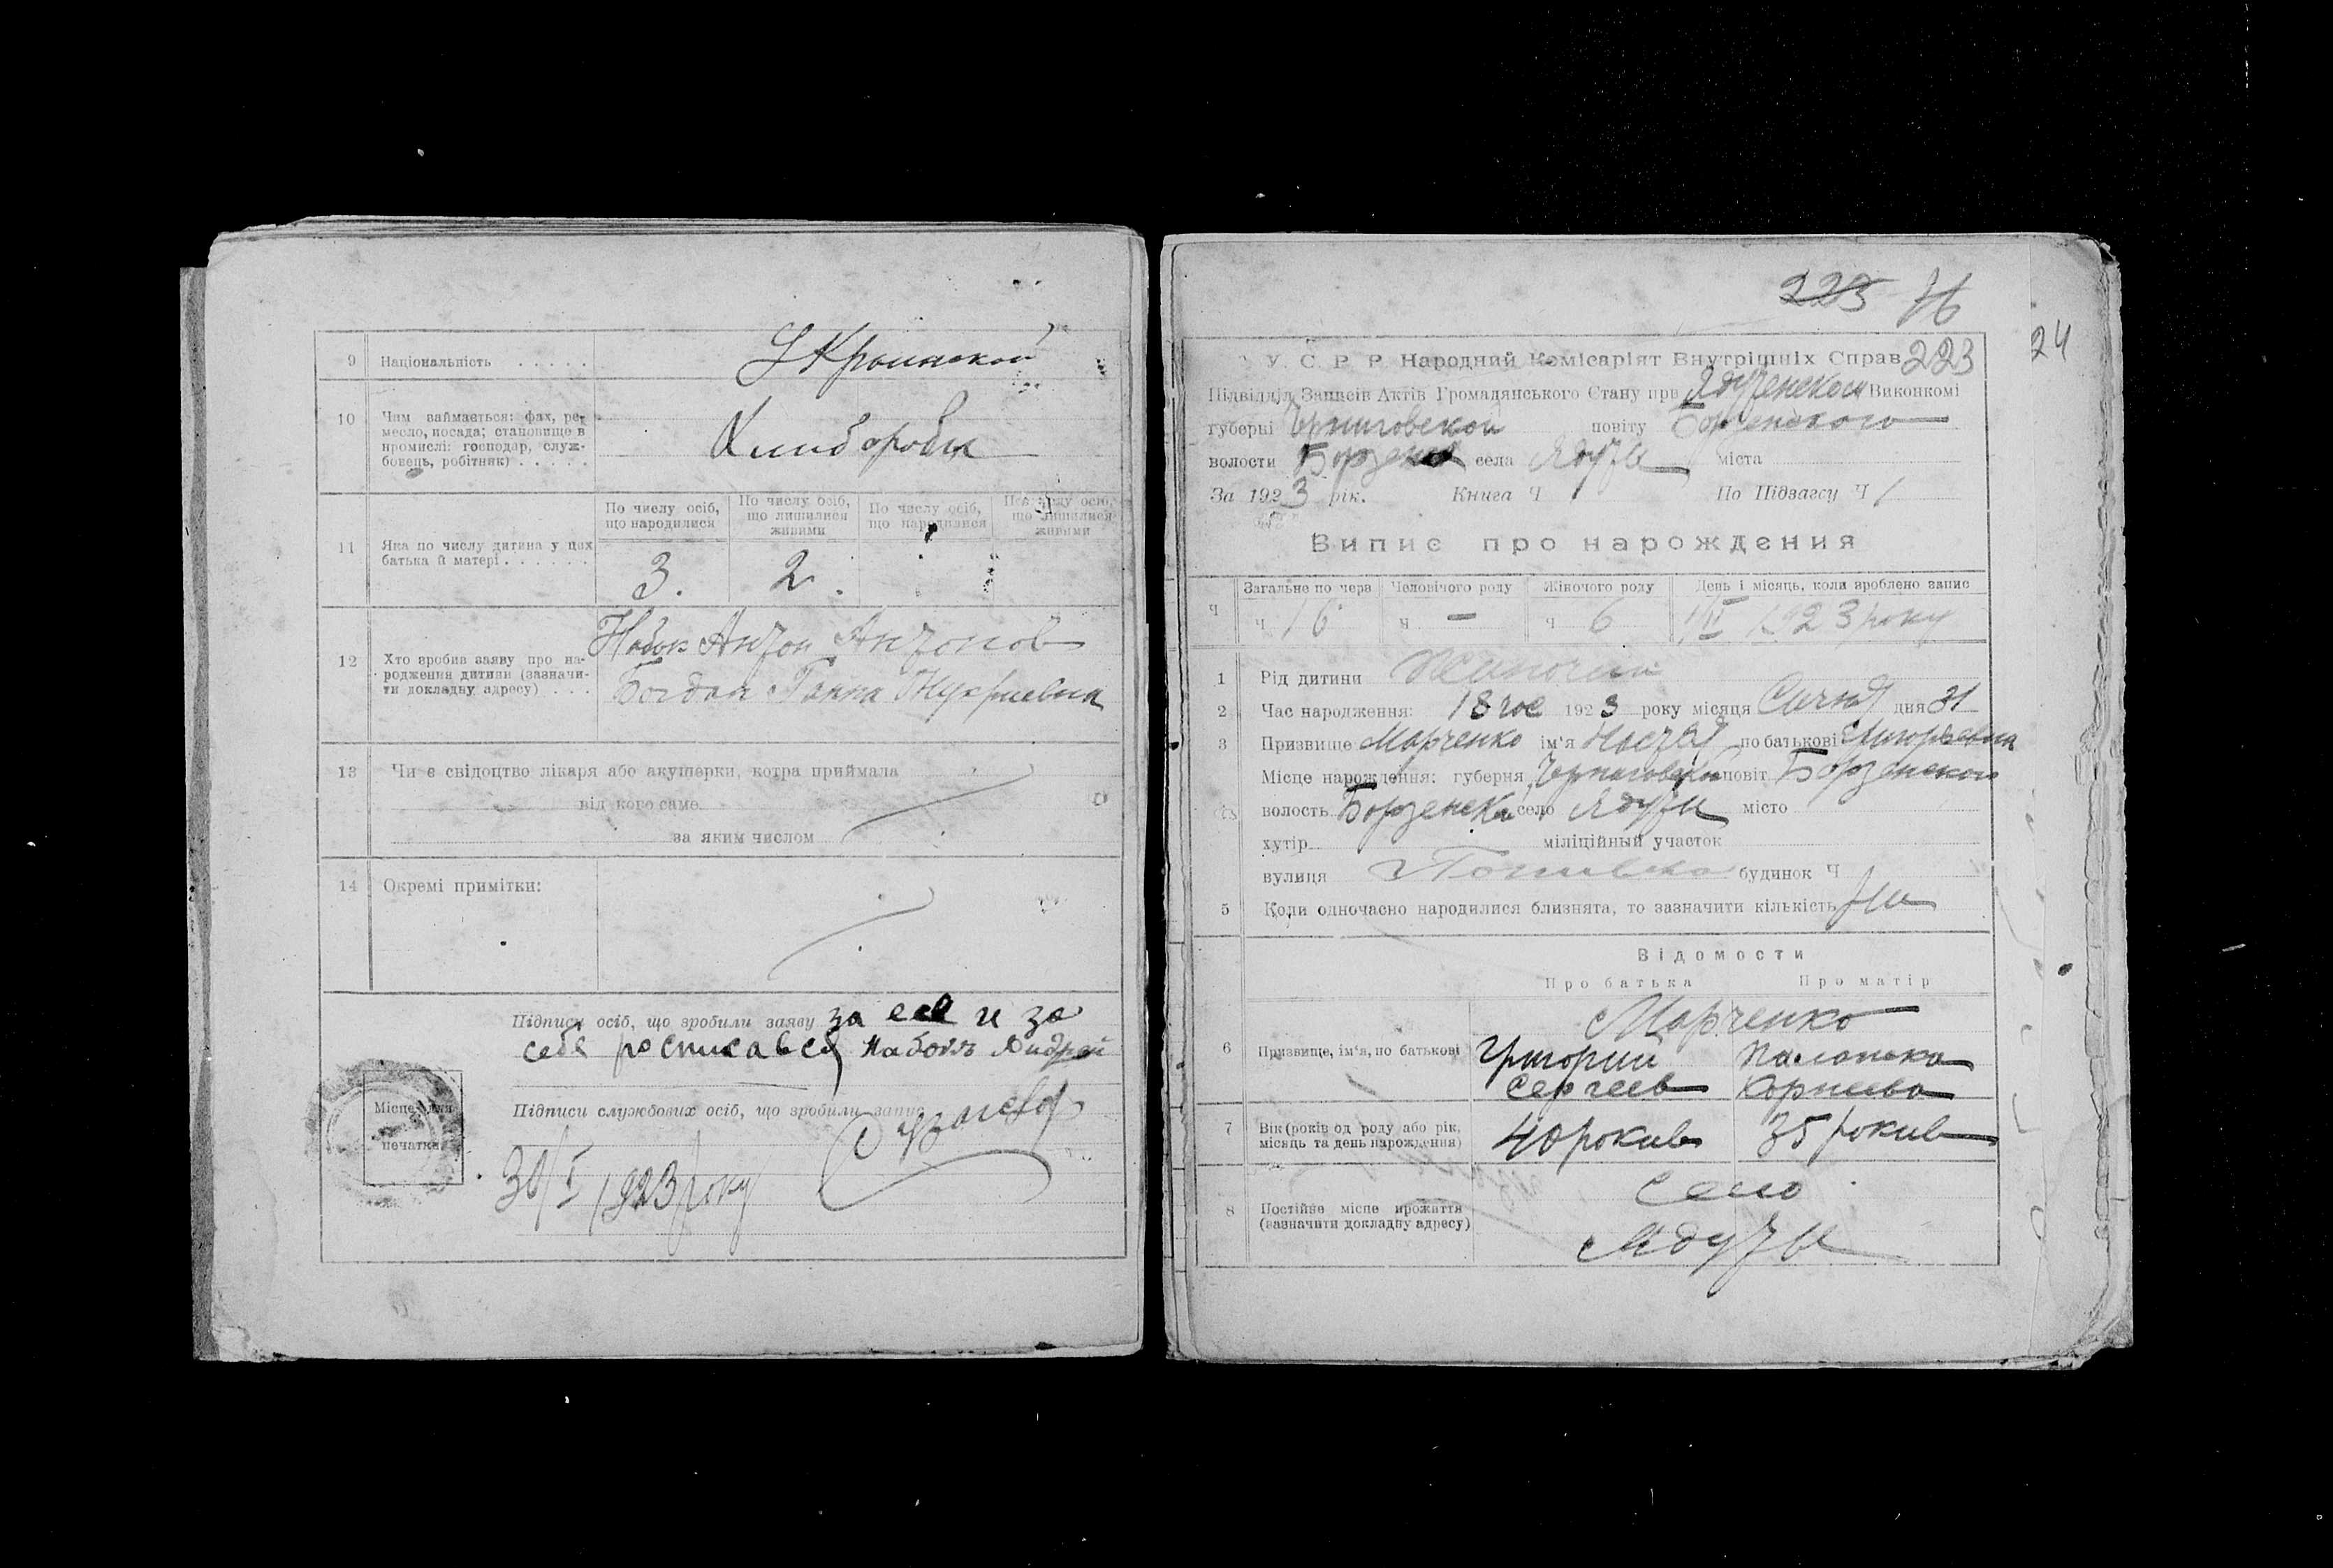 9 Національність . . . . . Украинской
10 Чим займається: фах, ре-
месло, посада; становище в
промислі: господар, служ-
бовець, робітник) . . . . .
Хлиборобы
По числу осіб, що народилися
По числу осіб, що лишилися живими
По числу осіб, що народилися
По числу осіб, що лишилися живими
11 Яка по числу дитина у цих
батька й матері . . . . . .
3. 2.
12 Хто зробив заяву про на-
родження дитини (зазначи-
ти докладну адресу) . . .
Антон Антонов
Богдан Ганна
13 Чи є свідоцтво лікаря або акушерки, котра приймала
від кого саме
за яким числом
14 Окремі примітки:
Підписи осіб, що зробили заяву за ее и за
себя росписався Наболь Андрей
Місце для
печатки
Підписи службових осіб, що зробили запис
30/I 1923 року
223 76
24
У. С. Р. Р. Народний Комісаріят Внутрішніх Справ 223
Підвідділ Записів Актів Громадянського Стану при Ядутенском Виконкомі
губерні Черниговской повіту Борзенского
волости Борзенск села Ядуты міста
За 1923 рік. Книга Ч По Підзагсу Ч 1
Випис про народження
Загальне по черв Человічого роду Жіночого роду День і місяць, коли зроблено запис
Ч ч 16 ч — ч 6 1/II 1923 року
1 Рід дитини Жаночий
2 Час народження: 18 час 1923 року місяця Сичня дня 31
3 Призвище Марченко ім'я Настя по батькові Григорьевна
Місце нарождення: губерня Черниговской повіт Борзенского
волость Борзенска село Ядуты місто
хутір міліційный участок
вулиця будинок Ч
5 Коли одночасно народилися близнята, то зазначити кількість Ни
Відомости
Про батька Про матір
Марченко
6 Призвище, ім'я, по батькові Григорий Палажка
Сергеев Корнеева
7 Вік (років од роду або рік,
місяць та день нарождення)
40 рокив 35 рокив
8 Постійне місце прожиття
(зазначити докладну адресу)
Село
Ядуты